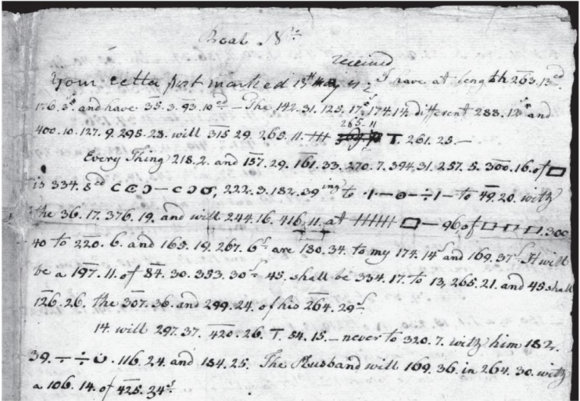 received
Your letta post marked 15th have at length 263.13.ed
176.8.s and have 35.3.93.10. — The 142.31.125.17.s 174.14 different 288.12.s and
400.10.127.9.298.28. will 315.29.263.11.
265.11
T. 261.25.—
Every Thing 218.2. and 157.29.161.33.270.7.394.31.257.5.300.16. of □
is 334.8.ed 222.3.182.39.ing to ÷ to 49.20. with
the 36.17.376.19. and will 244.16.416.11. at □ — 96 of □ □ □ .300
40 to 220.6. and 163.19.267.6.d are 130.34. to my 174.14.s and 169.37. It will
be a 197.11. of 84.30.353.30. 45. shall be 334.17. to 13,265.21. and 45 shall
126.26. the 307.36. and 299.24. of his 264.29.
14. will 297.37.420.26. T. 84.15.— never to 320.7. with him 182.
39. ÷ .116.24. and 184.25. The Husband will 169.36. in 264.30. with
a 106.14. of 425.24.